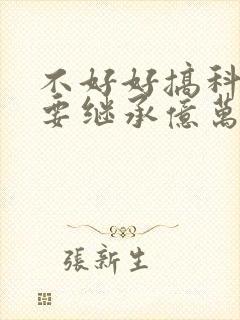 不好好搞科
要继承億萬
張新生